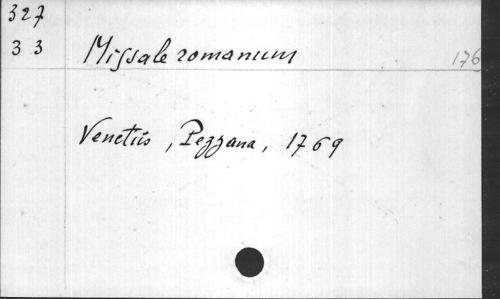 327
33 Missale romanum 176
Venetiis, Pezzana, 1769